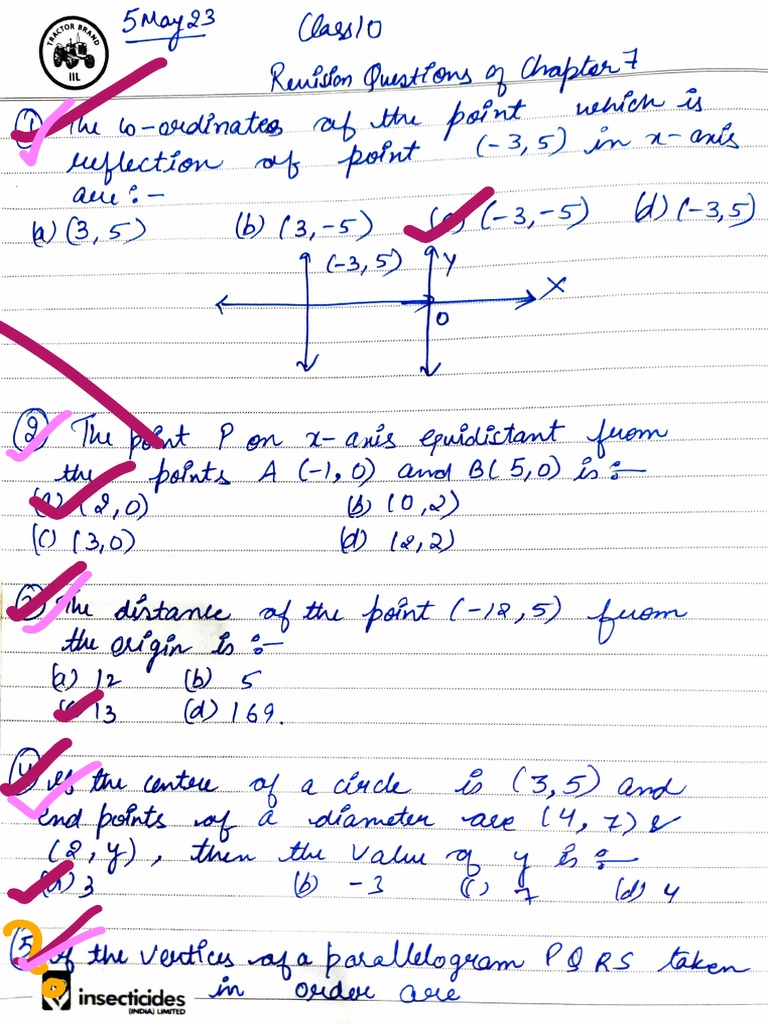 TRACTOR BRAND
IIL
5 May 23 Class 10
Revision Questions of Chapter 7
① The co-ordinates of the point which is
reflection of point (-3, 5) in x-axis
are :-
(a) (3, 5) (b) (3, -5) (c) (-3, -5) (d) (-3, 5)
(-3, 5) Y
X
O
② The point P on x-axis equidistant from
the points A (-1, 0) and B (5, 0) is :-
(a) (2, 0) (b) (0, 2)
(c) (3, 0) (d) (2, 2)
③ The distance of the point (-12, 5) from
the origin is :-
(a) 12 (b) 5
(c) 13 (d) 169.
④ If the centre of a circle is (3, 5) and
end points of a diameter are (4, 7) &
(2, y), then the value of y is :-
(a) 3 (b) -3 (c) 7 (d) 4
⑤ If the vertices of a parallelogram PQRS taken
in order are
insecticides
(INDIA) LIMITED